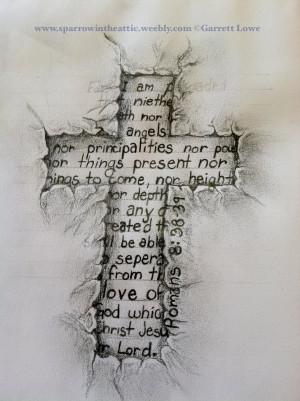 www.sparrowintheattic.weebly.com ©Garrett Lowe
I am p
niethe
th nor
angels
nor principalities nor pow
or things present nor
hings to come, nor height
or depth
r any c
eated th
ll be able
sepera
from th
love of
god whic
christ Jesu
r Lord.
Romans 8:38-39